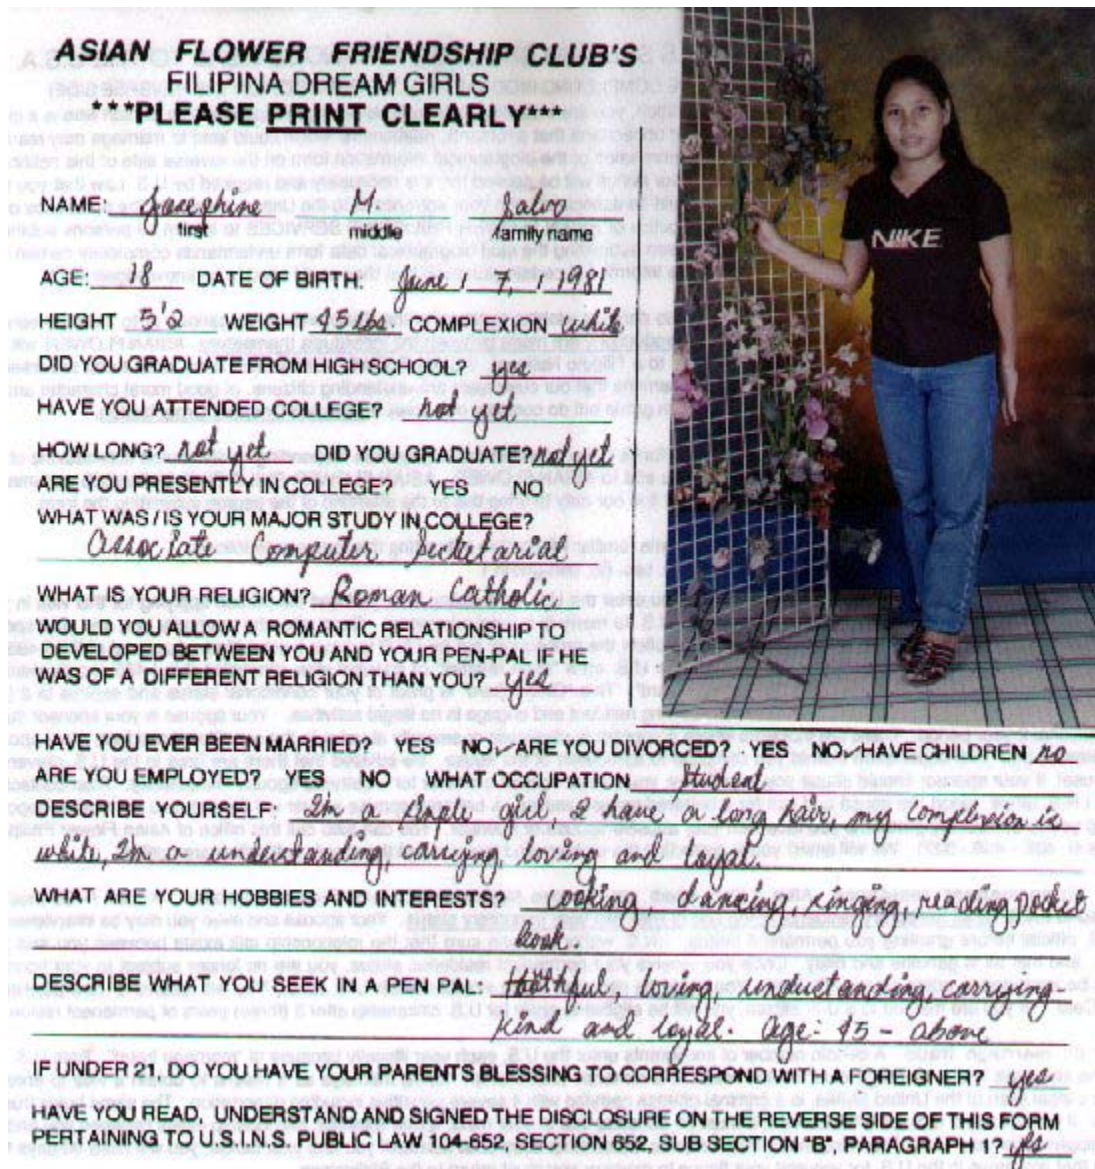 ASIAN FLOWER FRIENDSHIP CLUB'S
FILIPINA DREAM GIRLS
***PLEASE PRINT CLEARLY***
NAME: Josephine M. Salvo
first middle family name
AGE: 18 DATE OF BIRTH: June / 7, / 1981
HEIGHT 5'2 WEIGHT 45 lbs COMPLEXION white
DID YOU GRADUATE FROM HIGH SCHOOL? yes
HAVE YOU ATTENDED COLLEGE? not yet
HOW LONG? not yet DID YOU GRADUATE? not yet
ARE YOU PRESENTLY IN COLLEGE? YES NO
WHAT WAS / IS YOUR MAJOR STUDY IN COLLEGE?
Associate Computer Secketarial
WHAT IS YOUR RELIGION? Roman Catholic
WOULD YOU ALLOW A ROMANTIC RELATIONSHIP TO
DEVELOPED BETWEEN YOU AND YOUR PEN-PAL IF HE
WAS OF A DIFFERENT RELIGION THAN YOU? yes
NIKE
HAVE YOU EVER BEEN MARRIED? YES NO ✓ ARE YOU DIVORCED? YES NO ✓ HAVE CHILDREN no
ARE YOU EMPLOYED? YES NO WHAT OCCUPATION Student
DESCRIBE YOURSELF: I'm a single girl, I have a long hair, my complexion is
white, I'm a understanding, carrying, loving and loyal.
WHAT ARE YOUR HOBBIES AND INTERESTS? cooking, dancing singing, reading pocket
book
DESCRIBE WHAT YOU SEEK IN A PEN PAL: loving, carrying
kind and loyal. age: 45 - above
IF UNDER 21, DO YOU HAVE YOUR PARENTS BLESSING TO CORRESPOND WITH A FOREIGNER? yes
HAVE YOU READ, UNDERSTAND AND SIGNED THE DISCLOSURE ON THE REVERSE SIDE OF THIS FORM
PERTAINING TO U.S.I.N.S. PUBLIC LAW 104-652, SECTION 652, SUB SECTION "B", PARAGRAPH 1? yes